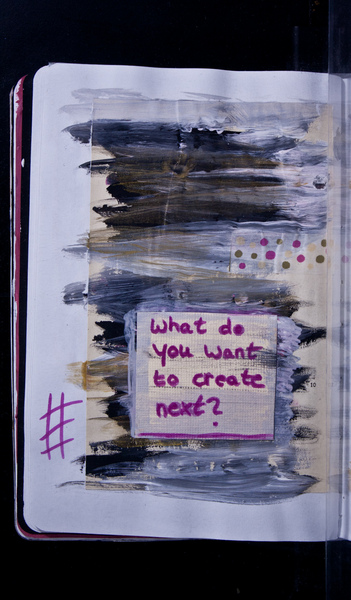 What do
you want
to create
next?
#
10